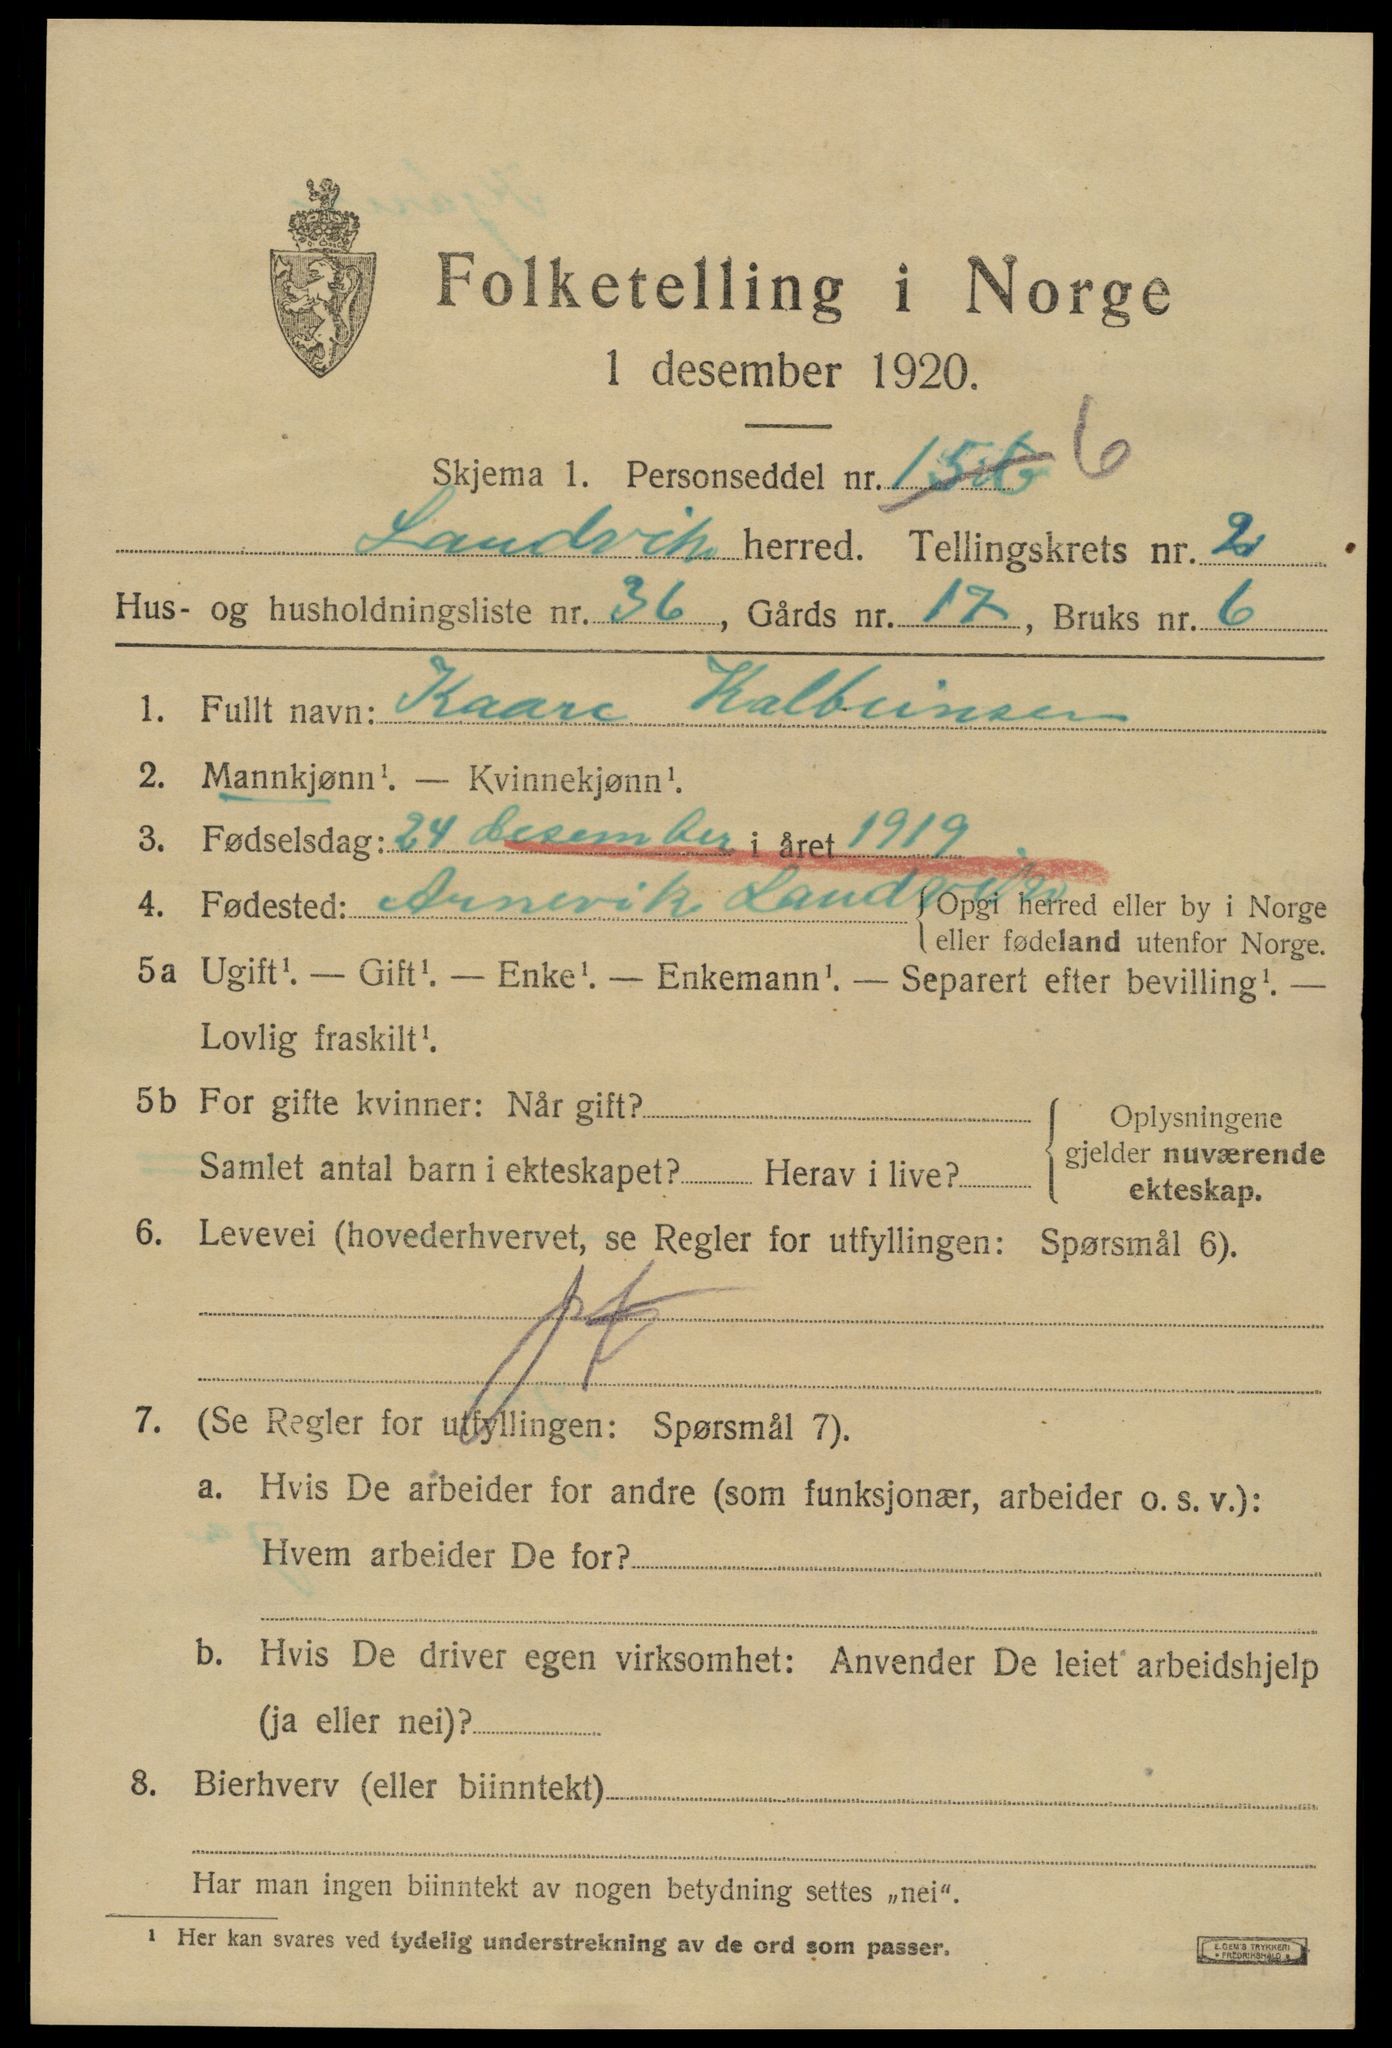 Folketelling i Norge
1 desember 1920.
Skjema 1. Personseddel nr. 6
Landvik herred. Tellingskrets nr. 2
Hus- og husholdningsliste nr. 36, Gårds nr. 17, Bruks nr. 6
1. Fullt navn: Kaare
2. Mannkjønn¹. — Kvinnekjønn¹.
3. Fødselsdag: 24 desember i året 1919
4. Fødested: Arnevik Landvik {Opgi herred eller by i Norge
eller fødeland utenfor Norge.
5a Ugift¹. — Gift¹. — Enke¹. — Enkemann¹. — Separert efter bevilling¹. —
Lovlig fraskilt¹.
5b For gifte kvinner: Når gift?
Samlet antal barn i ekteskapet? Herav i live?
{Oplysningene
gjelder nuværende
ekteskap.
6. Levevei (hovederhvervet, se Regler for utfyllingen: Spørsmål 6).
7. (Se Regler for utfyllingen: Spørsmål 7).
a. Hvis De arbeider for andre (som funksjonær, arbeider o. s. v.):
Hvem arbeider De for?
b. Hvis De driver egen virksomhet: Anvender De leiet arbeidshjelp
(ja eller nei)?
8. Bierhverv (eller biinntekt)
Har man ingen biinntekt av nogen betydning settes „nei“.
¹ Her kan svares ved tydelig understrekning av de ord som passer.
E. GEM'S TRYKKERI
FREDRIKSHALD